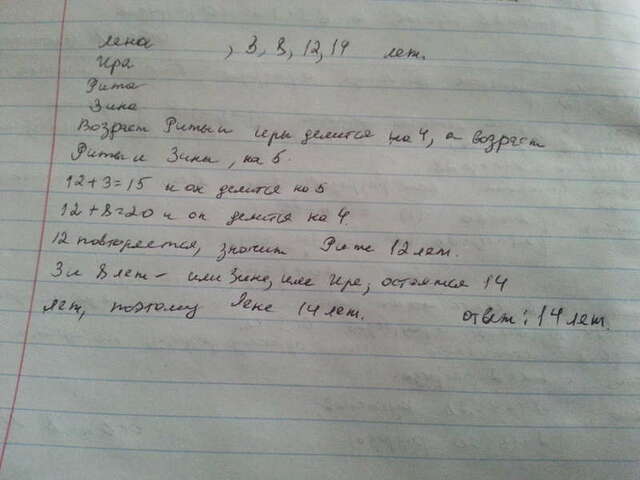 Лена , 3, 8, 12, 14 лет.
Ира
Рита
Зина
Возраст Риты и иры делится на 4, а возраст
Риты и Зины, на 5.
12+3=15 и он делится на 5
12+8=20 и он делится на 4.
12 повторяется, значит Рите 12 лет.
3 и 8 лет - или Зине, или Ире, остаётся 14
лет, поэтому Лене 14 лет. ответ: 14 лет.